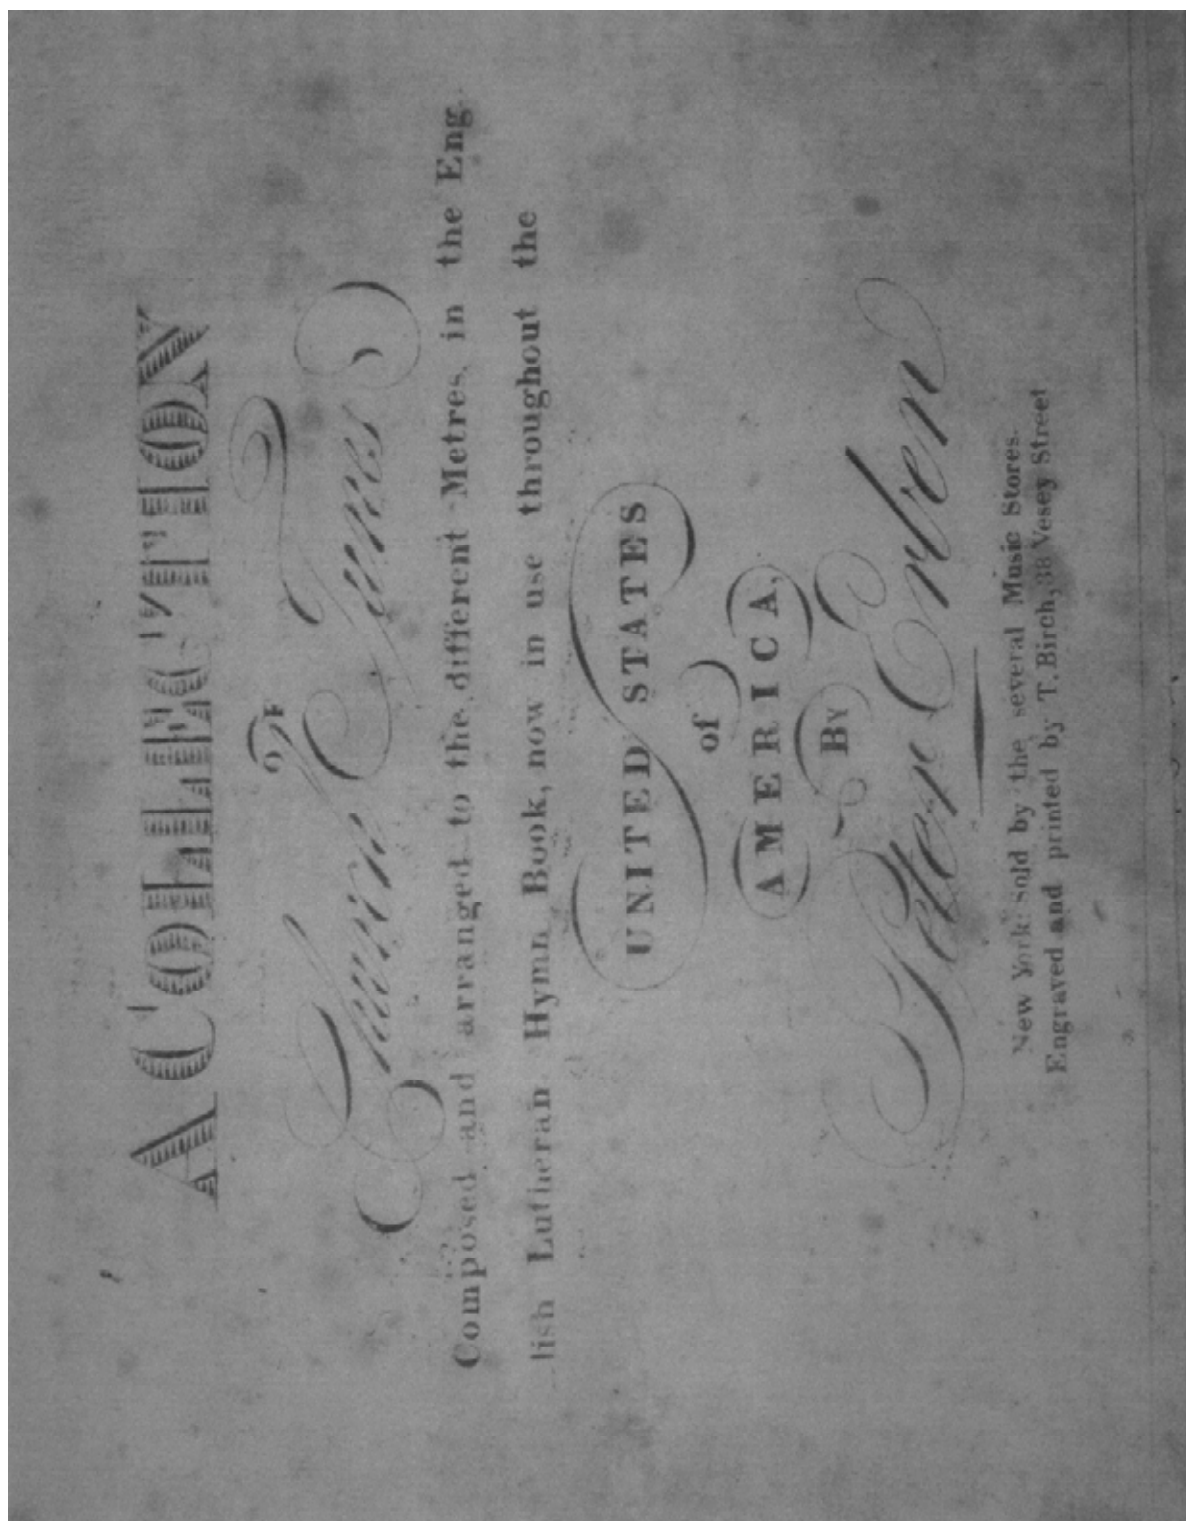 A COLLECTION
OF
Church Tunes
Composed and arranged to the different Metres, in the Eng-
lish Lutheran Hymn Book, now in use throughout the
UNITED STATES
of
AMERICA,
By
Peter Erben
New York: Sold by the several Music Stores.
Engraved and printed by T. Birch, 38 Vesey Street